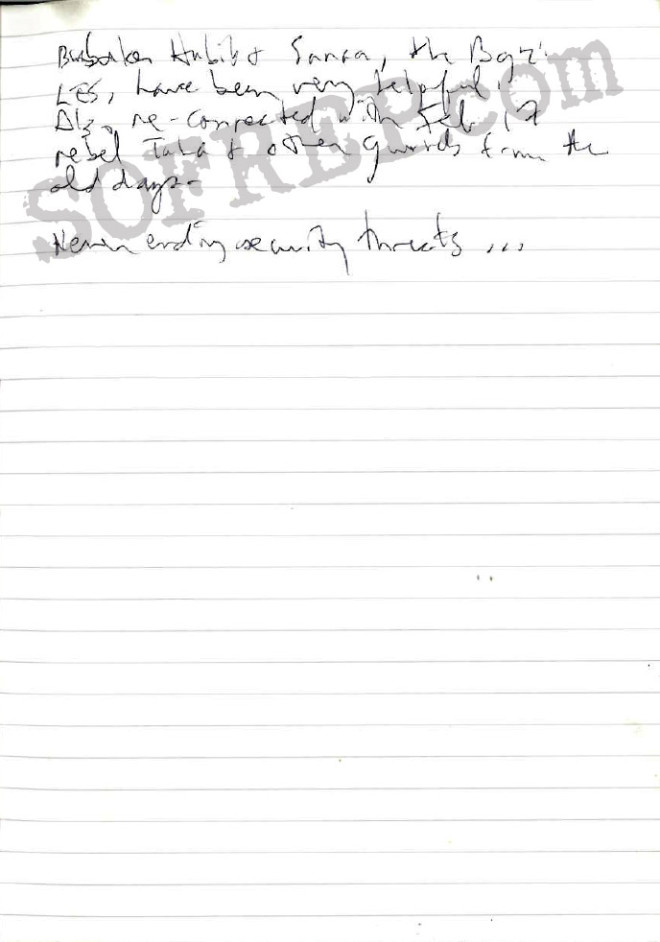 Bubaker Habib & Sanaa, the Bgzi
LES, have been very helpful.
Also, re-connected with Feb 17
rebel Taha & other guards from the
old days.
Never ending security threats ...
SOFREP.com